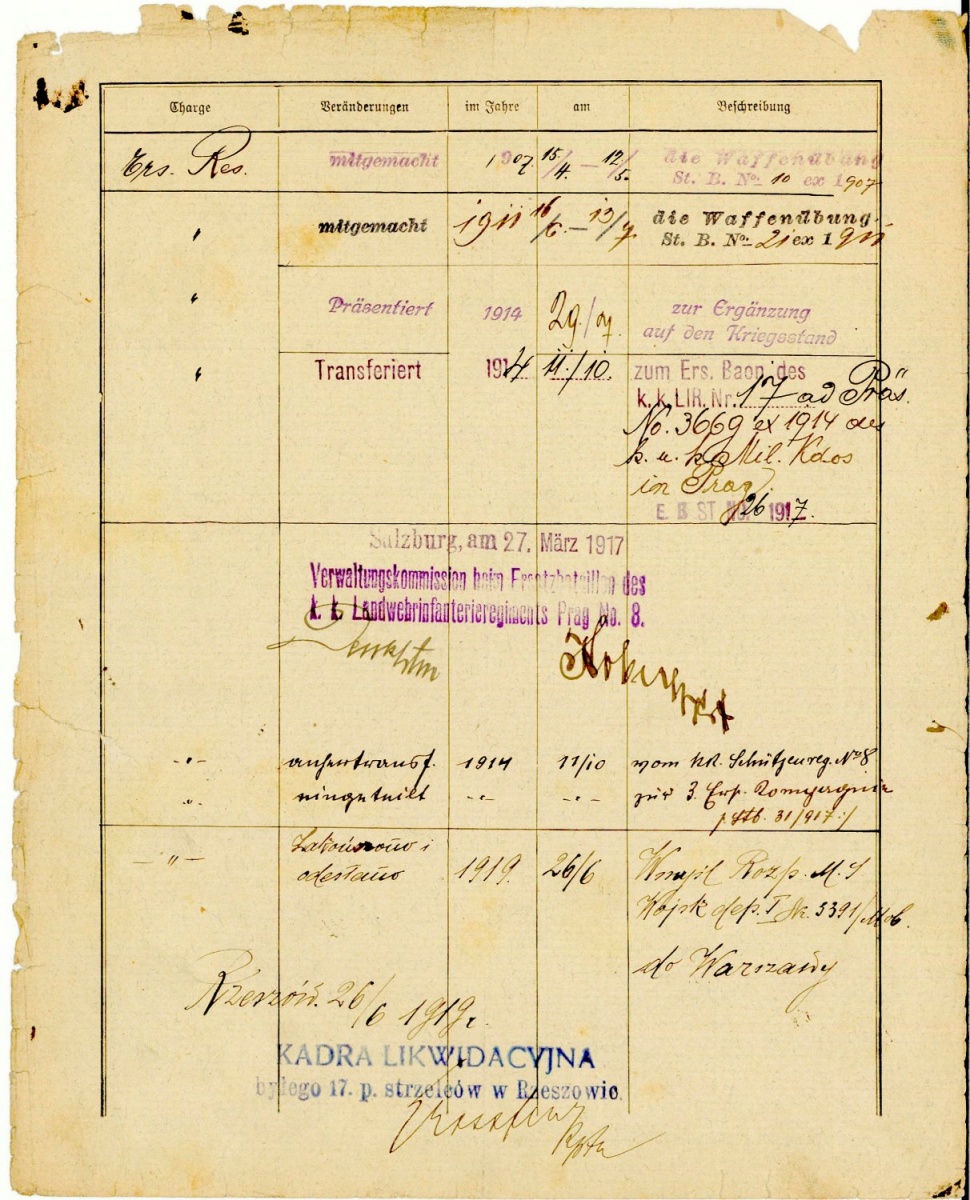 Charge Veränderungen im Jahre am Beschreibung
Ers. Res. mitgemacht 1907 15/4. – 12/5. die Waffenübung
St. B. No. 10 ex 1907
" mitgemacht 1911 16/6. – 13/7 die Waffenübung.
St. B. No. 21 ex 1911
" Präsentiert 1914 29./7. zur Ergänzung
auf den Kriegsstand
" Transferiert 1914 11./10. zum Ers. Baon. des
k. k. LIR. Nr. 17 ad Präs.
No. 3669 ex 1914 des
k. u. k. Mil. Kdos
in Prag.
E. B ST No. 26 1917.
Salzburg, am 27. März 1917
Verwaltungskommission beim Ersatzbataillon des
k. k. Landwehrinfanterieregiments Prag No. 8.
-"- anhertransf. 1914 11/10 vom kk. Schützenreg. No 8
-"- eingeteilt -"- -"- zur 3. Ers. Kompagnie
/: Stb. 31/917 :/
-"- Zakończono i
odesłano 1919. 26/6 Wmyśl Rozp. M. S
Wojsk dep. I 3391/Mob.
do Warszawy
Rzeszów. 26/6 1919 r.
KADRA LIKWIDACYJNA
byłego 17. p. strzelców w Rzeszowie.